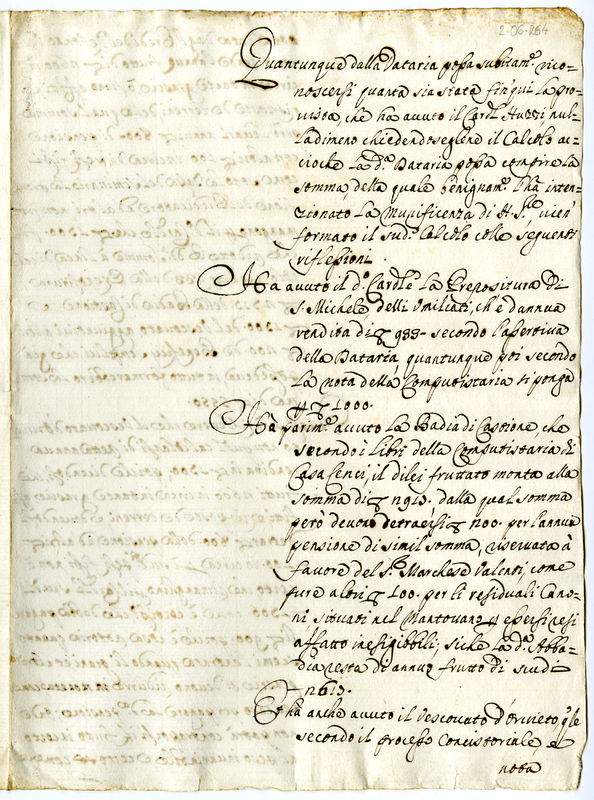 2-06-264
Quantunque dalla Dataria possa subitam.e rico=
noscersi quanta sia stata fin qui la pro=
vista, che ha avuto il Card.l nul=
ladimeno chiedendosegliene il Calcolo ac=
cioche la d.a Dataria possa compire la
somma, della quale benignam.e l'ha inten=
zionato la Munificenza di
formato il sud.o Calcolo colle seguenti
riflessioni.
Ha avuto il d.o Card.le la Prepositura di
S. Michele delli Umiliati, ch'è d'annua
rendita di 933- secondo l'assertiva
della Dataria, quantunque poi secondo
la nota della Computistaria si ponga
1000.
Ha parim.e avuto la Badia di Castione che
secondo i Libri della Computistaria di
Casa Cenci, il di lei fruttato monta alla
somma di 1913. dalla qual somma
però devono detraersi 200. per l'annua
pensione di simil somma, riservata à
favore del S.r Marchese Valenti, come
pure altri 100. per li residuali Cano=
ni situati nel Mantovano essersi resi
affatto inesigibili; siche la d.a Abba=
dia resta di annuo frutto di scudi
1613.
Et ha anche avuto il Vescovato d'Orvieto, q.le
secondo il processo Concistoriale, e
nota